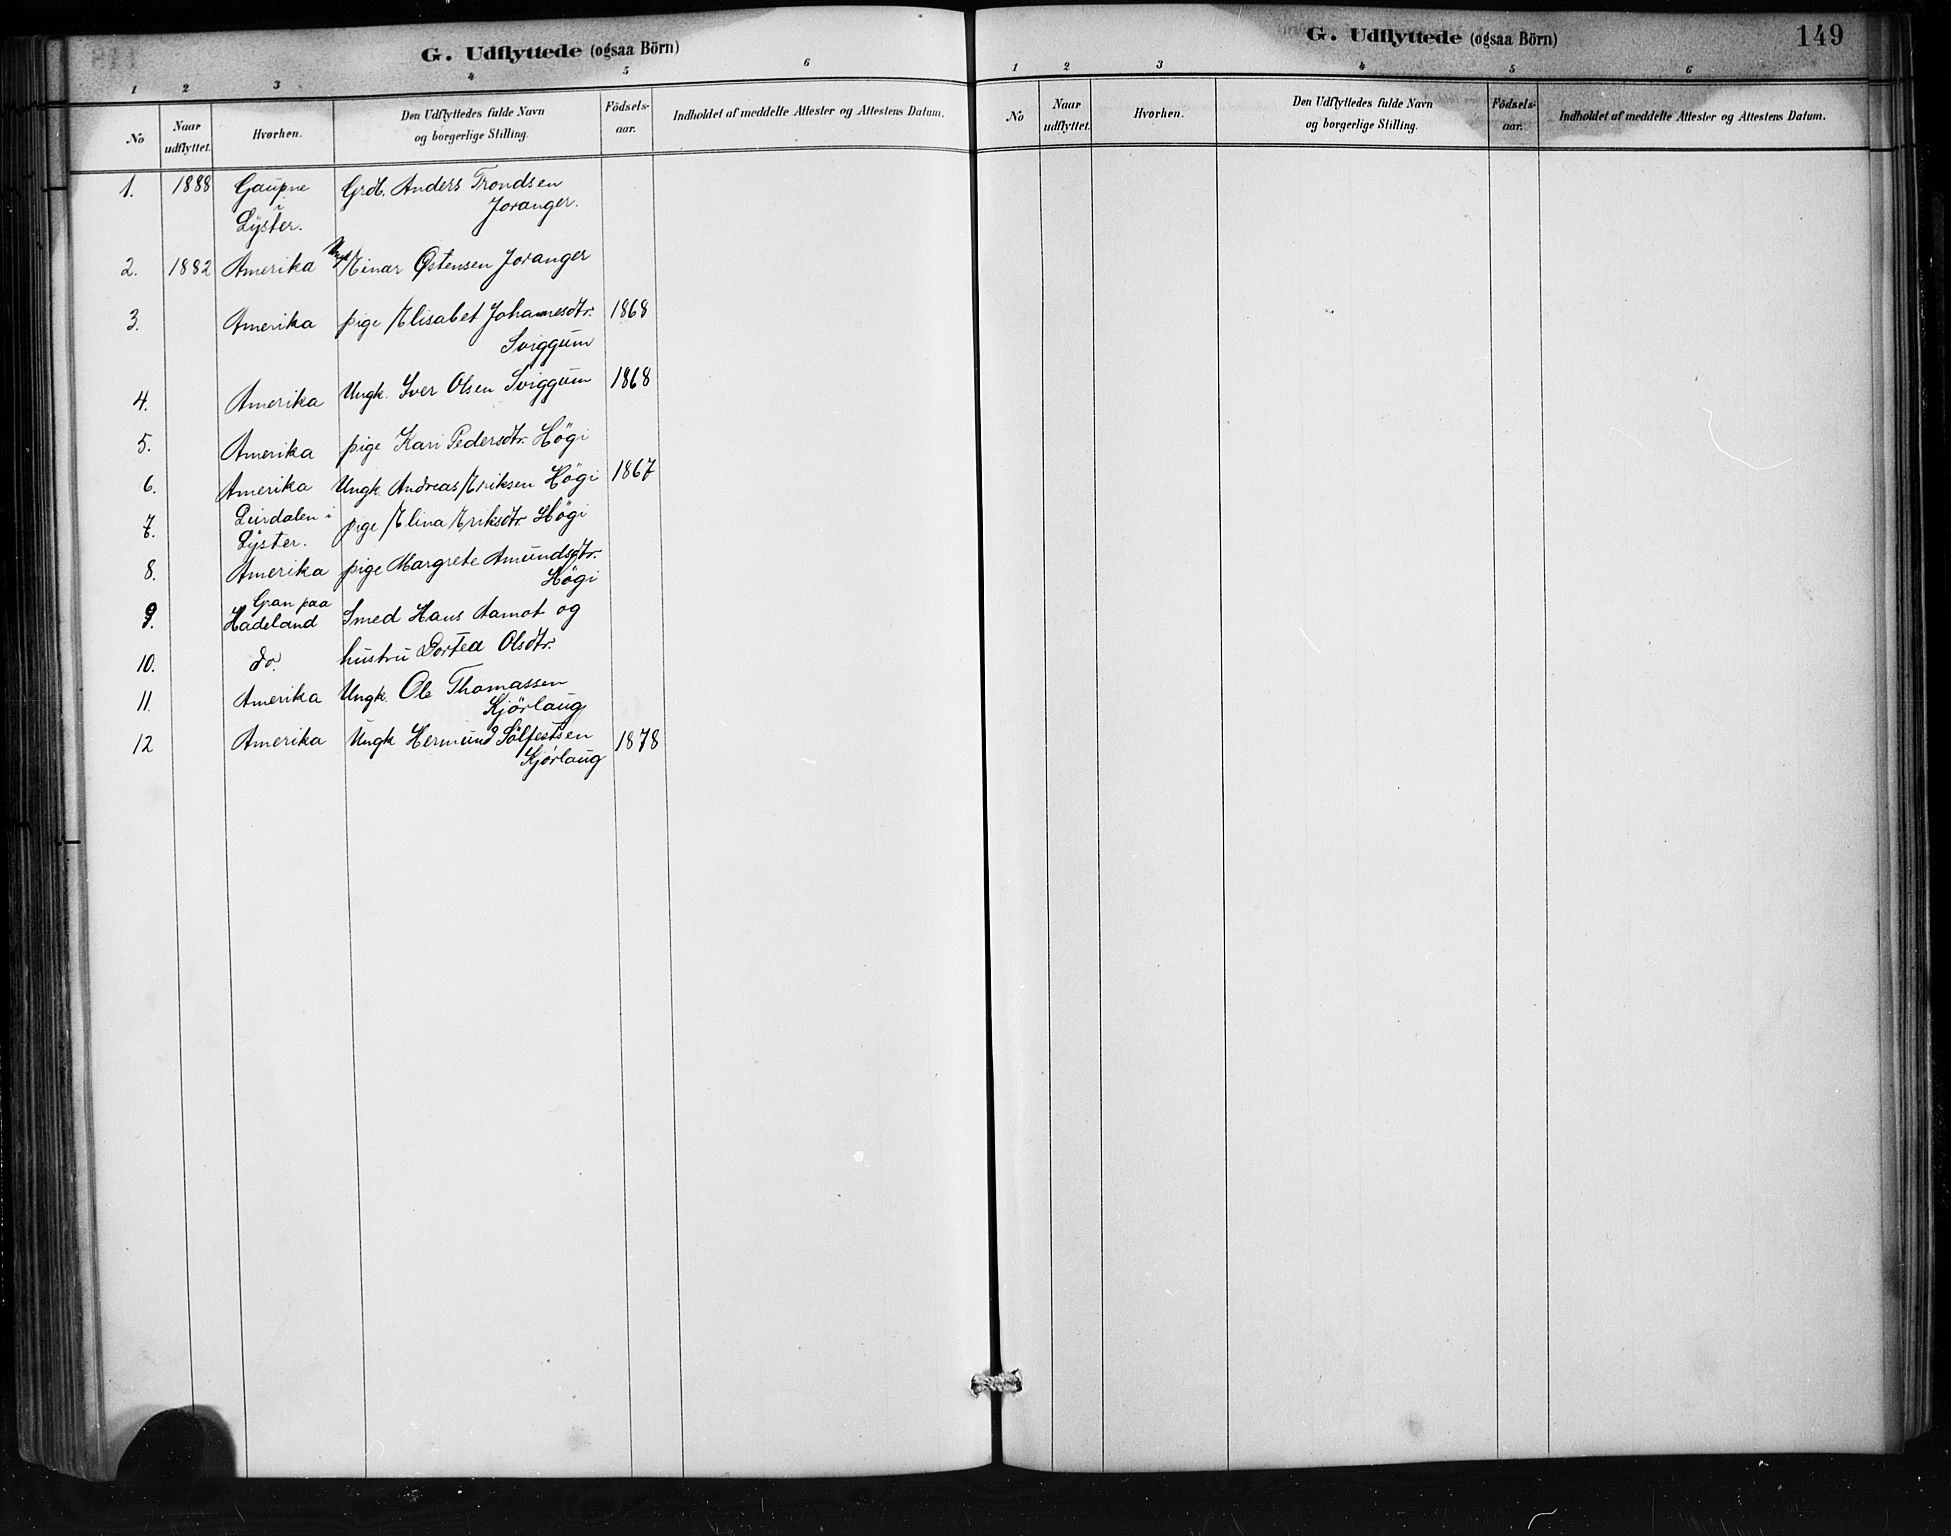 G. Udflyttede (ogsaa Börn)
1 2 3 4 5 6
No Naar udflyttet. Hvorhen. Den Udflyttedes fulde Navn og borgerlige Stilling. Födsels-aar. Indholdet af meddelte Attester og Attestens Datum.
1. 1888 Gaupne Grdb. Anders Trondsen
i Joranger.
Lÿster.
2. 1882 Amerika Ungk Einar Østensen Joranger
3. Amerika pige Elisabet Johannesdtr. 1868
Sviggum
4. Amerika Ungk. Iver Olsen Sviggum 1868
5. Amerika pige Kari Pedersdtr. Högi
6. Amerika Ungk. Andreas Eriksen Högi 1867
7. Leirdalen i pige Elina Eriksdtr. Högi
Lÿster.
8. Amerika pige Margrete Amundsdtr.
Högi
9. Gran paa
Hadeland Smed Hans Aamot og
10. do. hustru Dortea Olsdtr.
11. Amerika Ungk. Ole Thomassen
Kjörlaug
12 Amerika Ungk Hermund Sölfestsen 1878
Kjörlaug
149
G. Udflyttede (ogsaa Börn)
1 2 3 4 5 6
No Naar udflyttet. Hvorhen. Den Udflyttedes fulde Navn og borgerlige Stilling. Födsels-aar. Indholdet af meddelte Attester og Attestens Datum.